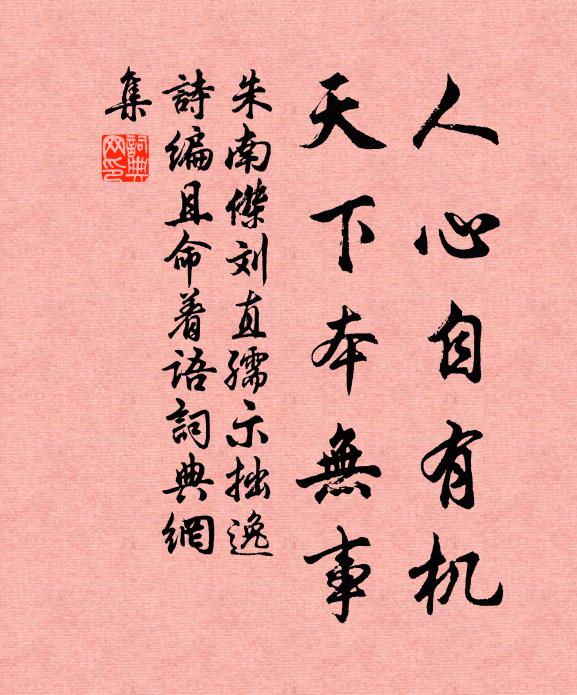 人心自有机
天下本無事
朱南傑刘直孺示拙逸
詩编且命着语詞典網
集
詞典
网印